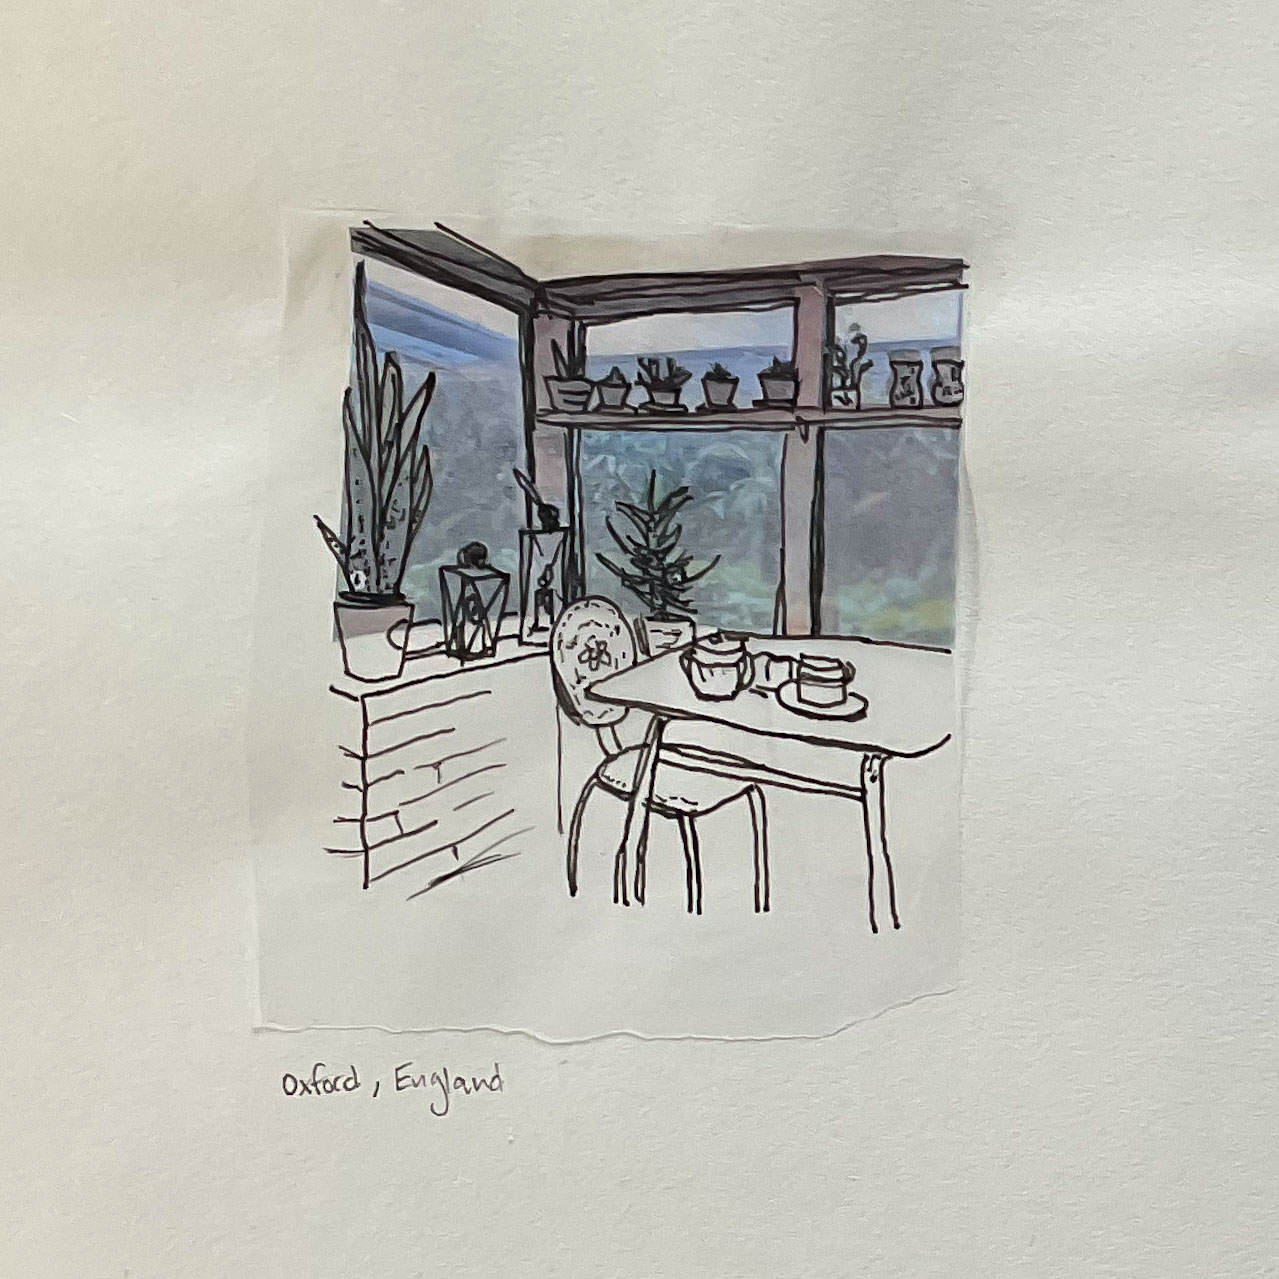 Oxford, England